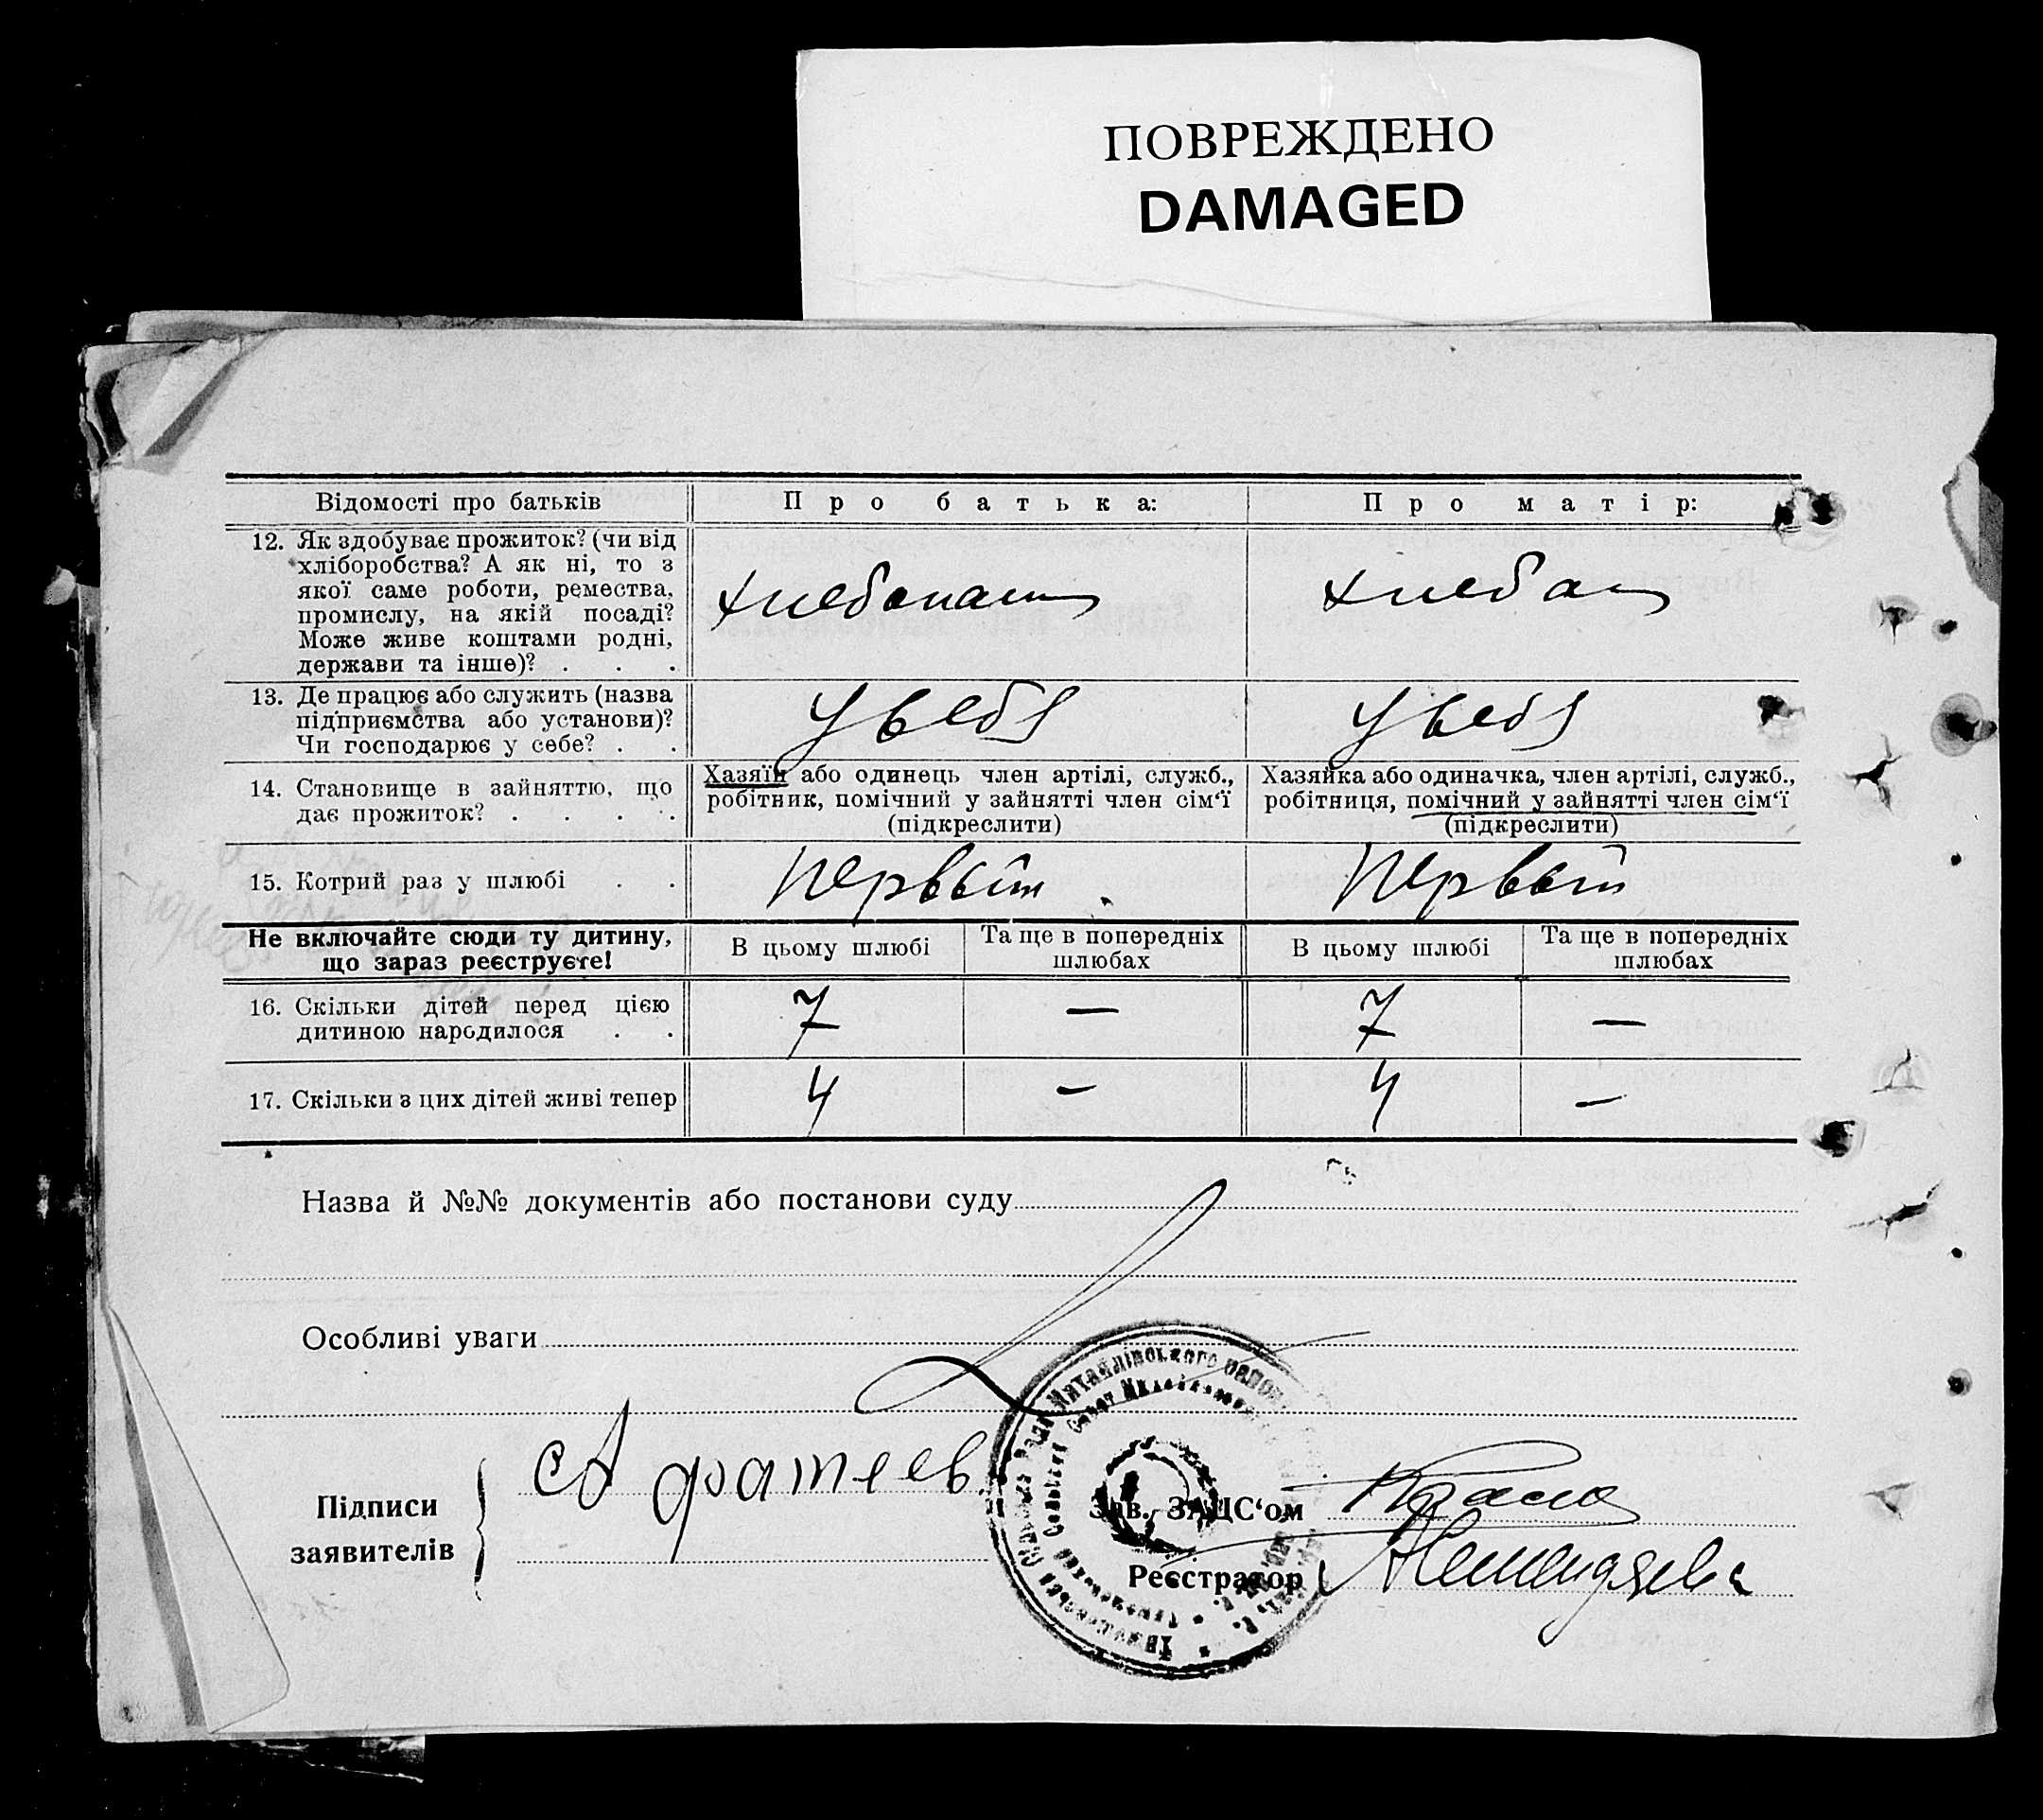 ПОВРЕЖДЕНО
DAMAGED
Відомості про батьків
Про батька:
Про матір:
12. Як здобуває прожиток? (чи від
хліборобства? А як ні, то з
якої саме роботи, ремества,
промислу, на якій посаді?
Може живе коштами родні,
держави та інше)? . . .
хлебопаш
хлебаш
13. Де працює або служить (назва
підприємства або установи)?
Чи господарює у себе? . .
У себя
У себя
14. Становище в зайняттю, що
дає прожиток? . . . .
Хазяїн або одинець член артілі, служб.,
робітник, помічний у зайнятті член сім‘ї
(підкреслити)
Хазяйка або одиначка, член артілі, служб.,
робітниця, помічний у зайнятті член сім‘ї
(підкреслити)
15. Котрий раз у шлюбі . .
Первый
Первый
Не включайте сюди ту дитину,
що зараз реєструєте!
В цьому шлюбі
Та ще в попередніх
шлюбах
В цьому шлюбі
Та ще в попередніх
шлюбах
16. Скільки дітей перед цією
дитиною народилося . .
7
—
7
—
17. Скільки з цих дітей живі тепер
4
—
4
—
Назва й №№ документів або постанови суду
Особливі уваги
Підписи
заявителів
А фатеев
Зав. ЗАЦС‘ом
Реєстратор
Михайлівського